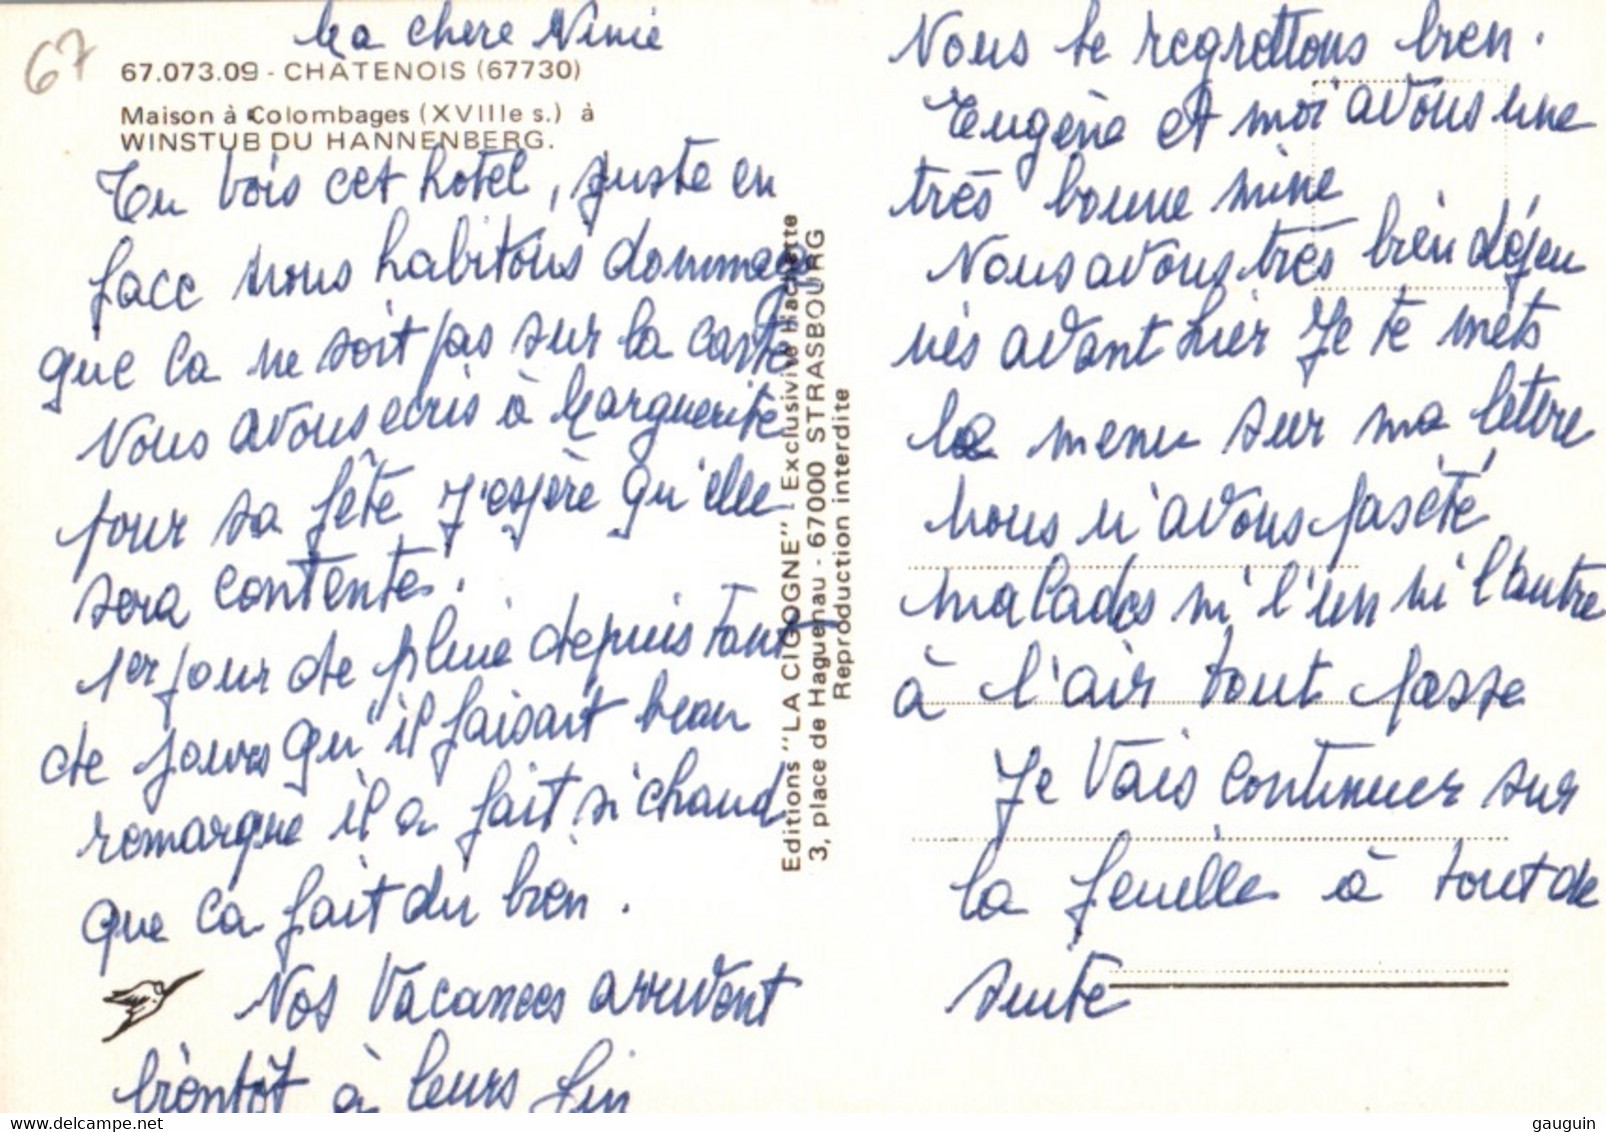 67
Ma chere Ninie
67.073.09 - CHÂTENOIS (67730)
Maison à Colombages (XVIIIe s.) à
WINSTUB DU HANNENBERG.
Tu vois cet hotel, juste en
face nous habitons dommage
que ca ne soit pas sur la carte
Nous avons ecris à Marguerite
pour sa fête J'espère qu'elle
sera contente.
1er jour de pluie depuis tant
de jours qu'il faisait beau
remarque il a fait si chaud
que ca fait du bien.
Nos Vacances arrivent
bientôt à leurs fin
Editions "LA CIGOGNE" - Exclusivité Hachette
3, place de Haguenau - 67000 STRASBOURG
Reproduction interdite
Nous te regrettons bien.
Eugène et moi avons une
très bonne mine
Nous avons très bien déjeu
nés avant hier Je te mets
le menu sur ma lettre
nous n'avons pas été
malades ni l'un ni l'autre
à l'air tout passe
Je Vais continuer sur
la feuille à tout de
suite
gauguin © www.delcampe.net